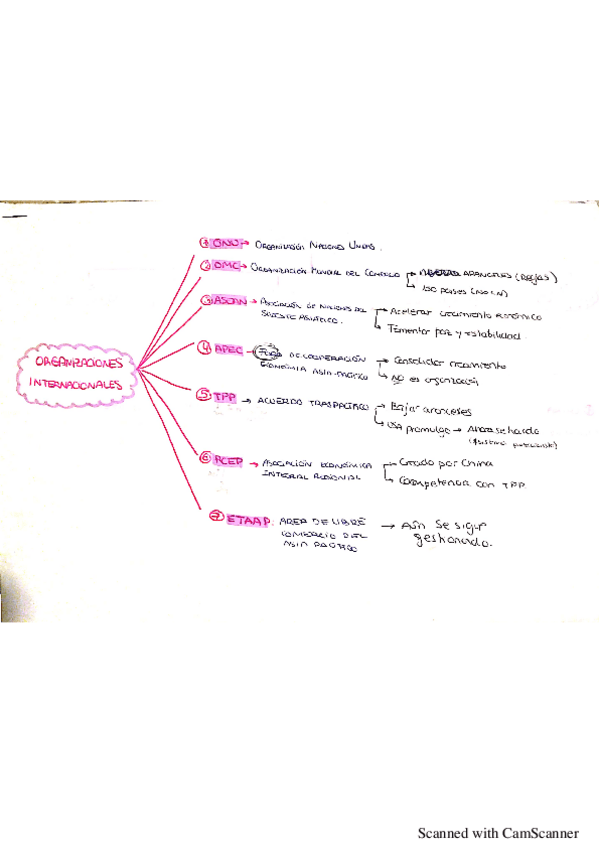 ORGANIZACIONES
INTERNACIONALES
1 ONU → ORGANIZACIÓN NACIONES UNIDAS.
2 OMC → ORGANIZACIÓN MUNDIAL DEL COMERCIO → ARANCELES (REGLAS)
→ 150 PAISES
3 ASEAN → ASOCIACIÓN DE NACIONES DEL
SUDESTE ASIÁTICO.
→ Acelerar crecimiento económico
→ Fomentar paz y estabilidad
4 APEC → FORO DE COOPERACIÓN
ECONOMÍA ASIA-PACÍFICO
→ Consolidar crecimiento
→ NO es organización
5 TPP → ACUERDO TRASPACÍFICO → Bajar aranceles
→ USA promulgo → Ahora se ha ido
6 RCEP → ASOCIACIÓN ECONÓMICA
INTEGRAL REGIONAL
→ Creado por China
→ Competencia con TPP
7 ETAAP: AREA DE LIBRE
COMERCIO DEL
ASIA PACÍFICO
→ Aún se sigue
gestionando.
Scanned with CamScanner